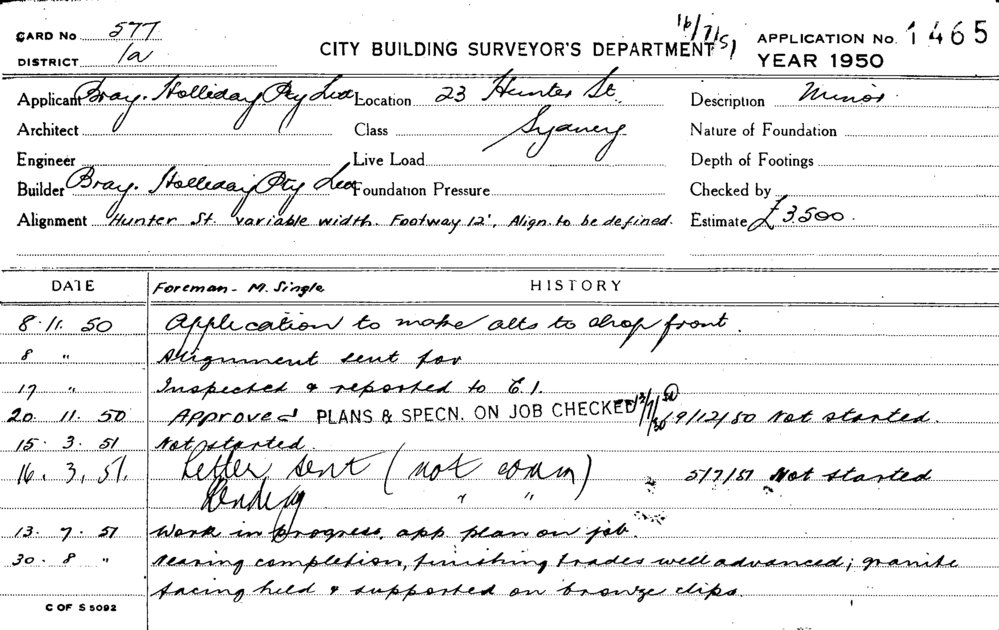 CARD No 577
DISTRICT 1a
CITY BUILDING SURVEYOR'S DEPARTMENT 16/7/51
APPLICATION No. 1465
YEAR 1950
Applicant Bray. Holliday Pty Ltd Location 23 Hunter St. Description Minor
Architect Class Sydney Nature of Foundation
Engineer Live Load Depth of Footings
Builder Bray. Holliday Pty Ltd Foundation Pressure Checked by
Alignment Hunter St. variable width. Footway 12', Align. to be defined. Estimate £3,500.
DATE Foreman - M. Single HISTORY
8. 11. 50 Application to make alts to shop front.
8 " Alignment sent for
17 " Inspected & reported to C.I.
20. 11. 50 Approved PLANS & SPECN. ON JOB CHECKED 19/12/50 Not started.
15. 3. 51 Not started.
16. 3. 51. Letter sent (not comm) 5/7/51 Not started
Pending " "
13. 7. 51 Work in progress, app. plan on job.
30. 8 " Nearing completion, finishing trades well advanced; granite
facing held & supported on bronze clips.
C OF S 5092